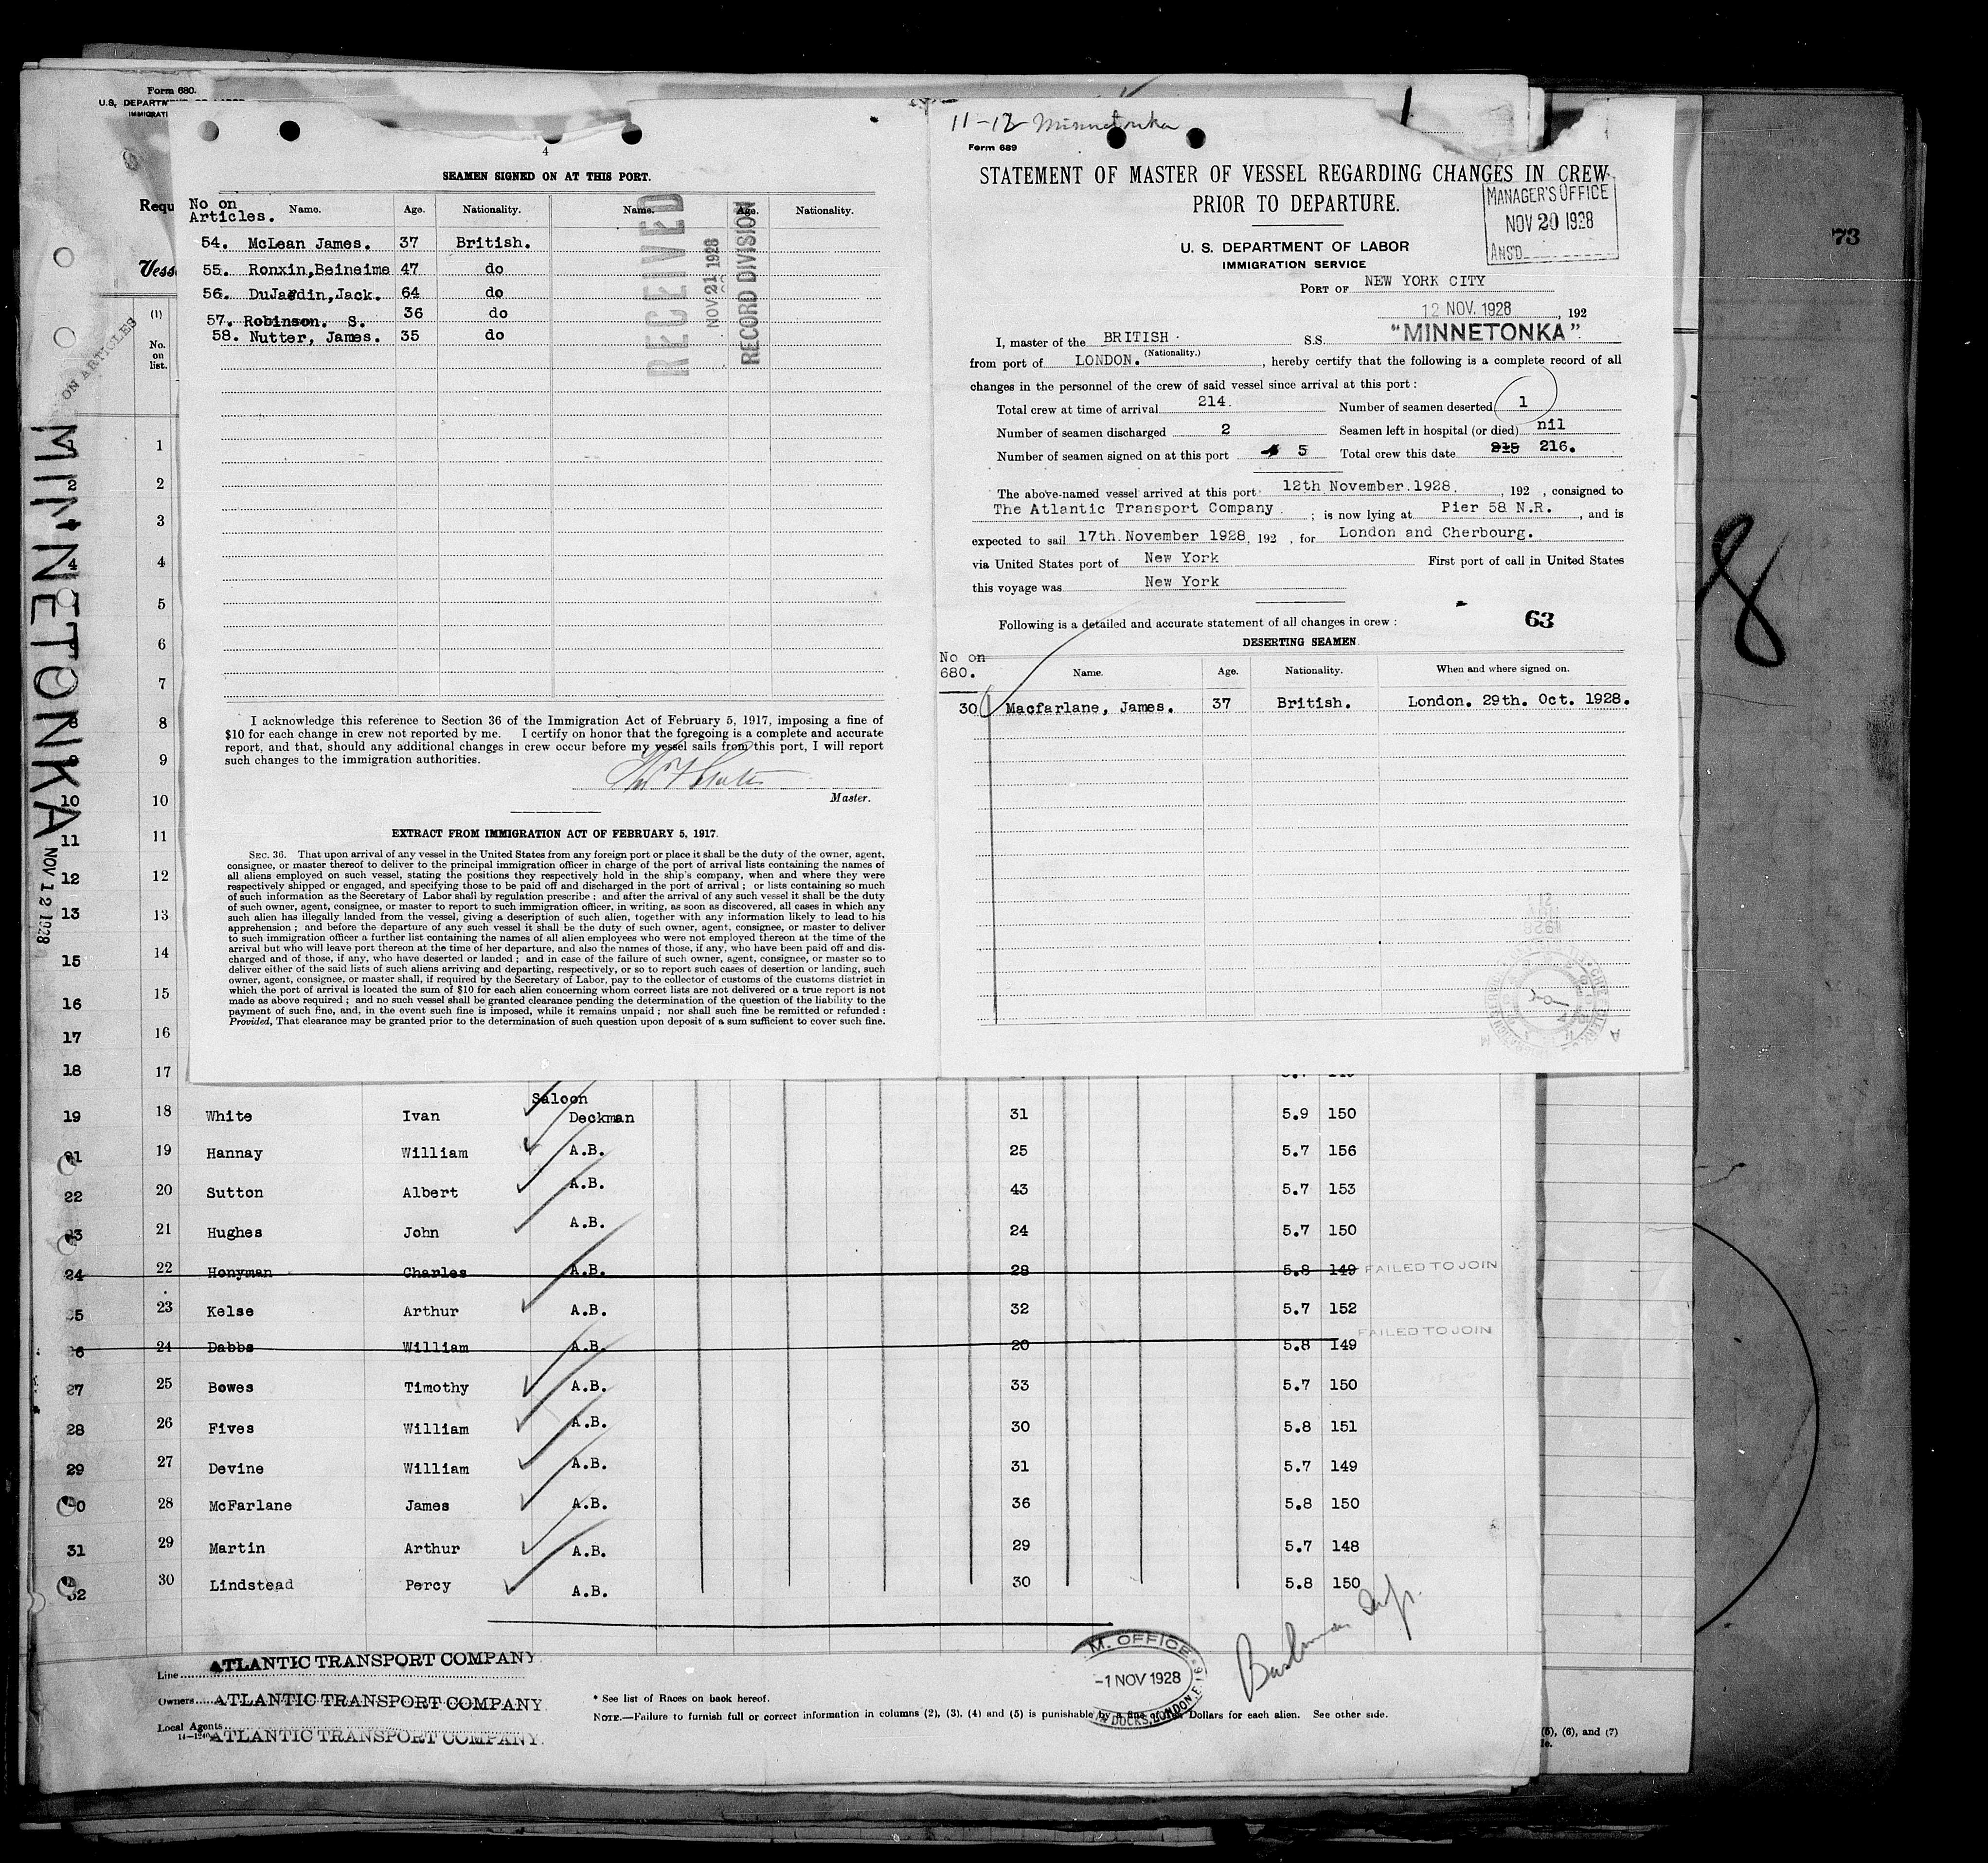 Form 680.
U. S. DEPARTM
IMMIGRATI
Requ
Vess
(1)
No.
on
list.
ON ARTICLES
MINNETONKA
NOV 12 1928
4
SEAMEN SIGNED ON AT THIS PORT.
No on
Articles. Name. Age. Nationality. Name. Age. Nationality.
54. McLean James. 37 British.
55. Ronxin,Beineime 47 do
56. DuJardin,Jack. 64 do
57. Robinson. S. 36 do
58. Nutter, James. 35 do
RECEIVED
NOV 21 1928
RECORD DIVISION
I acknowledge this reference to Section 36 of the Immigration Act of February 5, 1917, imposing a fine of
$10 for each change in crew not reported by me. I certify on honor that the foregoing is a complete and accurate
report, and that, should any additional changes in crew occur before my vessel sails from this port, I will report
such changes to the immigration authorities.
Master.
EXTRACT FROM IMMIGRATION ACT OF FEBRUARY 5, 1917.
SEC. 36. That upon arrival of any vessel in the United States from any foreign port or place it shall be the duty of the owner, agent,
consignee, or master thereof to deliver to the principal immigration officer in charge of the port of arrival lists containing the names of
all aliens employed on such vessel, stating the positions they respectively hold in the ship's company, when and where they were
respectively shipped or engaged, and specifying those to be paid off and discharged in the port of arrival ; or lists containing so much
of such information as the Secretary of Labor shall by regulation prescribe ; and after the arrival of any such vessel it shall be the duty
of such owner, agent, consignee, or master to report to such immigration officer, in writing, as soon as discovered, all cases in which any
such alien has illegally landed from the vessel, giving a description of such alien, together with any information likely to lead to his
apprehension ; and before the departure of any such vessel it shall be the duty of such owner, agent, consignee, or master to deliver
to such immigration officer a further list containing the names of all alien employees who were not employed thereon at the time of the
arrival but who will leave port thereon at the time of her departure, and also the names of those, if any, who have been paid off and dis-
charged and of those, if any, who have deserted or landed ; and in case of the failure of such owner, agent, consignee, or master so to
deliver either of the said lists of such aliens arriving and departing, respectively, or so to report such cases of desertion or landing, such
owner, agent, consignee, or master shall, if required by the Secretary of Labor, pay to the collector of customs of the customs district in
which the port of arrival is located the sum of $10 for each alien concerning whom correct lists are not delivered or a true report is not
made as above required ; and no such vessel shall be granted clearance pending the determination of the question of the liability to the
payment of such fine, and, in the event such fine is imposed, while it remains unpaid ; nor shall such fine be remitted or refunded :
Provided, That clearance may be granted prior to the determination of such question upon deposit of a sum sufficient to cover such fine.
11-12 Minnetonka
Form 689
STATEMENT OF MASTER OF VESSEL REGARDING CHANGES IN CREW
PRIOR TO DEPARTURE.
MANAGER'S OFFICE
NOV 20 1928
ANS'D
U. S. DEPARTMENT OF LABOR
IMMIGRATION SERVICE
PORT OF NEW YORK CITY
12 NOV. 1928, 192
I, master of the BRITISH S.S. "MINNETONKA"
(Nationality.)
from port of LONDON. , hereby certify that the following is a complete record of all
changes in the personnel of the crew of said vessel since arrival at this port :
Total crew at time of arrival 214. Number of seamen deserted 1
Number of seamen discharged 2 Seamen left in hospital (or died) nil
Number of seamen signed on at this port 5 Total crew this date 215 216.
The above-named vessel arrived at this port 12th November.1928. , 192 , consigned to
The Atlantic Transport Company ; is now lying at Pier 58 N.R. , and is
expected to sail 17th November 1928, 192 , for London and Cherbourg.
via United States port of New York First port of call in United States
this voyage was New York
Following is a detailed and accurate statement of all changes in crew : 63
DESERTING SEAMEN.
No on
680. Name. Age. Nationality. When and where signed on.
30 Macfarlane, James. 37 British. London. 29th. Oct. 1928.
73
8
1 1
2 2
3 3
4 4
5
6
7
8 8
9 9
10 10
11 11
12 12
13 13
15 14
16 15
17 16
18 17
19 18 White Ivan Saloon Deckman 31 5.9 150
21 19 Hannay William A.B. 25 5.7 156
22 20 Sutton Albert A.B. 43 5.7 153
23 21 Hughes John A.B. 24 5.7 150
24 22 Honyman Charles A.B. 28 5.8 149 FAILED TO JOIN
25 23 Kelse Arthur A.B. 32 5.7 152
26 24 Dabbs William A.B. 20 5.8 149 FAILED TO JOIN
27 25 Bowes Timothy A.B. 33 5.7 150
28 26 Fives William A.B. 30 5.8 151
29 27 Devine William A.B. 31 5.7 149
30 28 McFarlane James A.B. 36 5.8 150
31 29 Martin Arthur A.B. 29 5.7 148
32 30 Lindstead Percy A.B. 30 5.8 150
Line ATLANTIC TRANSPORT COMPANY
Owners ATLANTIC TRANSPORT COMPANY
Local Agents ATLANTIC TRANSPORT COMPANY.
14-1240
* See list of Races on back hereof.
NOTE.—Failure to furnish full or correct information in columns (2), (3), (4) and (5) is punishable by a fine of Dollars for each alien. See other side.
M. OFFICE
-1 NOV 1928
DOCKS, LONDON. E. 16
(5), (6), and (7)